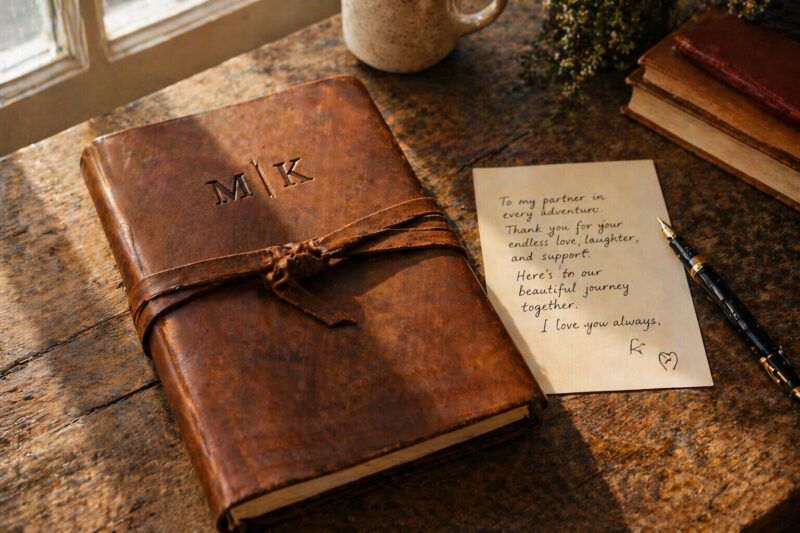 M|K
To my partner in
every adventure.
Thank you for your
endless love, laughter,
and support.
Here's to our
beautiful journey
together.
I love you always,